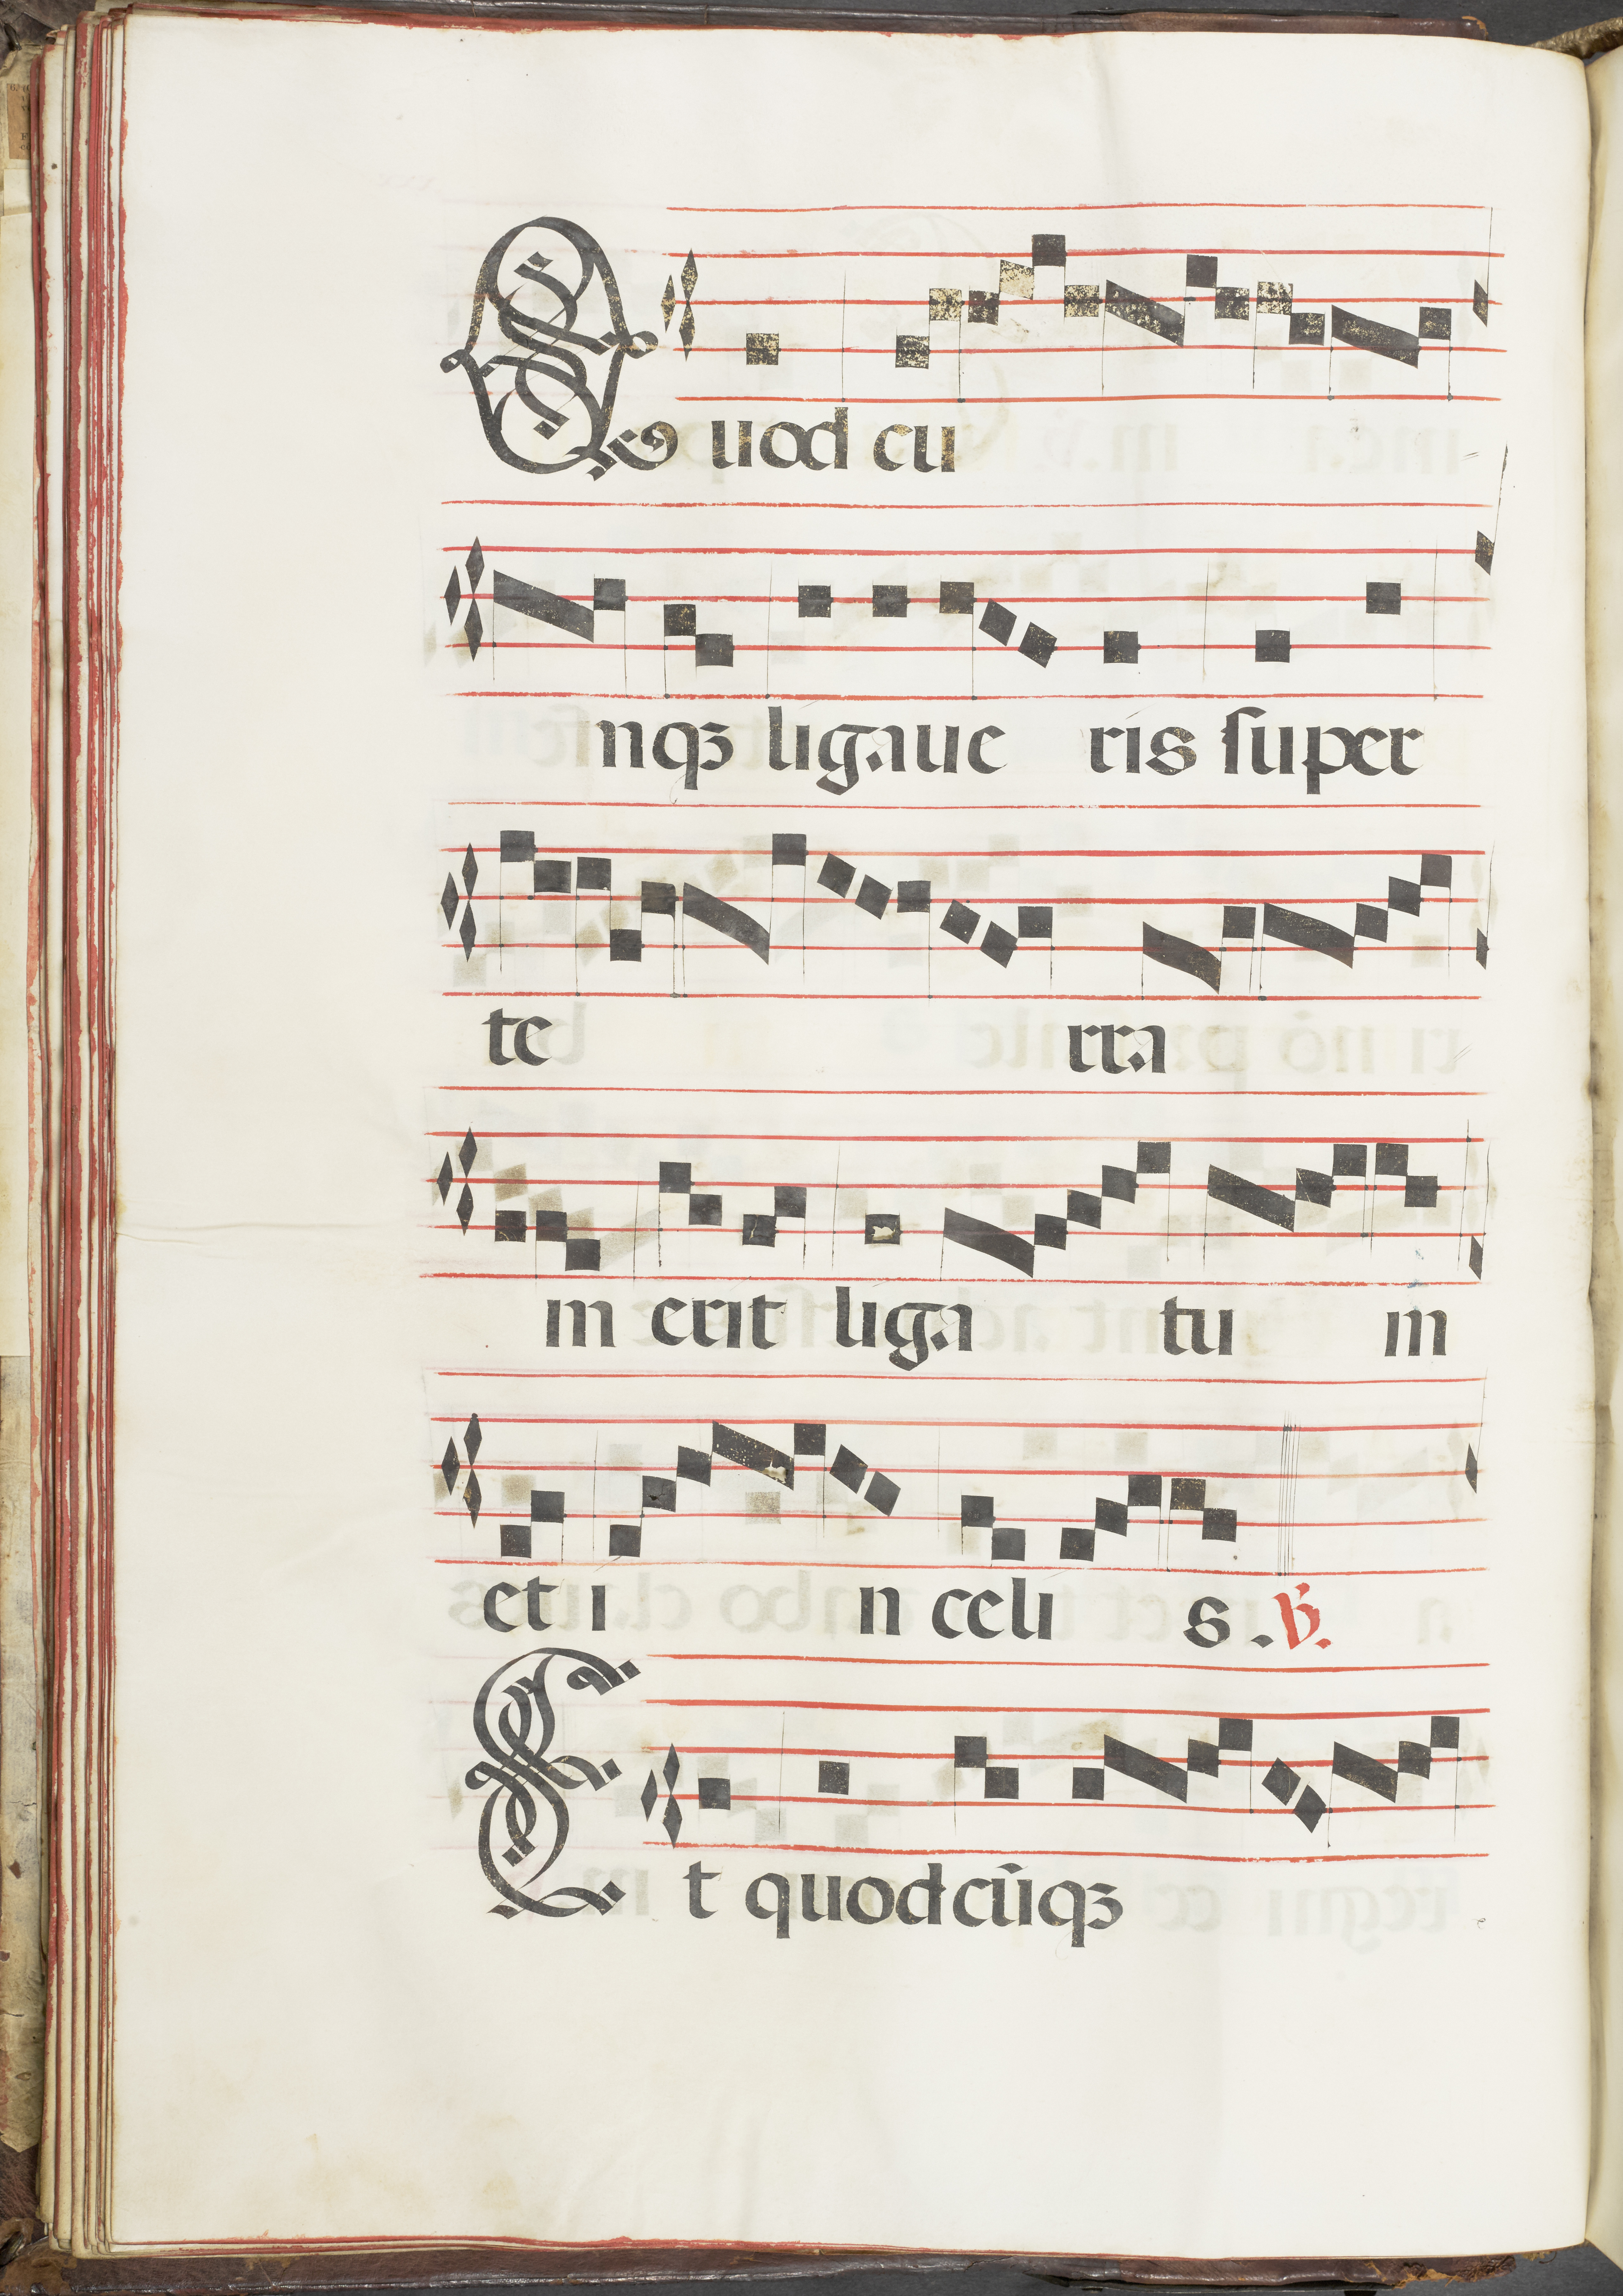 Q uod cu
nqꝫ ligaue ris ſuper
te rra
m erit liga tu m
et i n celi s . ℣.
E t quodcūqꝫ